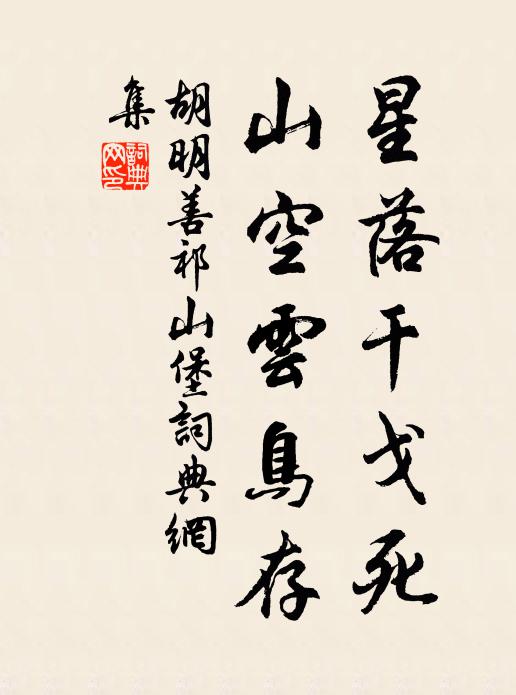 星落干戈死
山空雲鳥存
胡明善祁山堡詞典網
集
詞典
网印